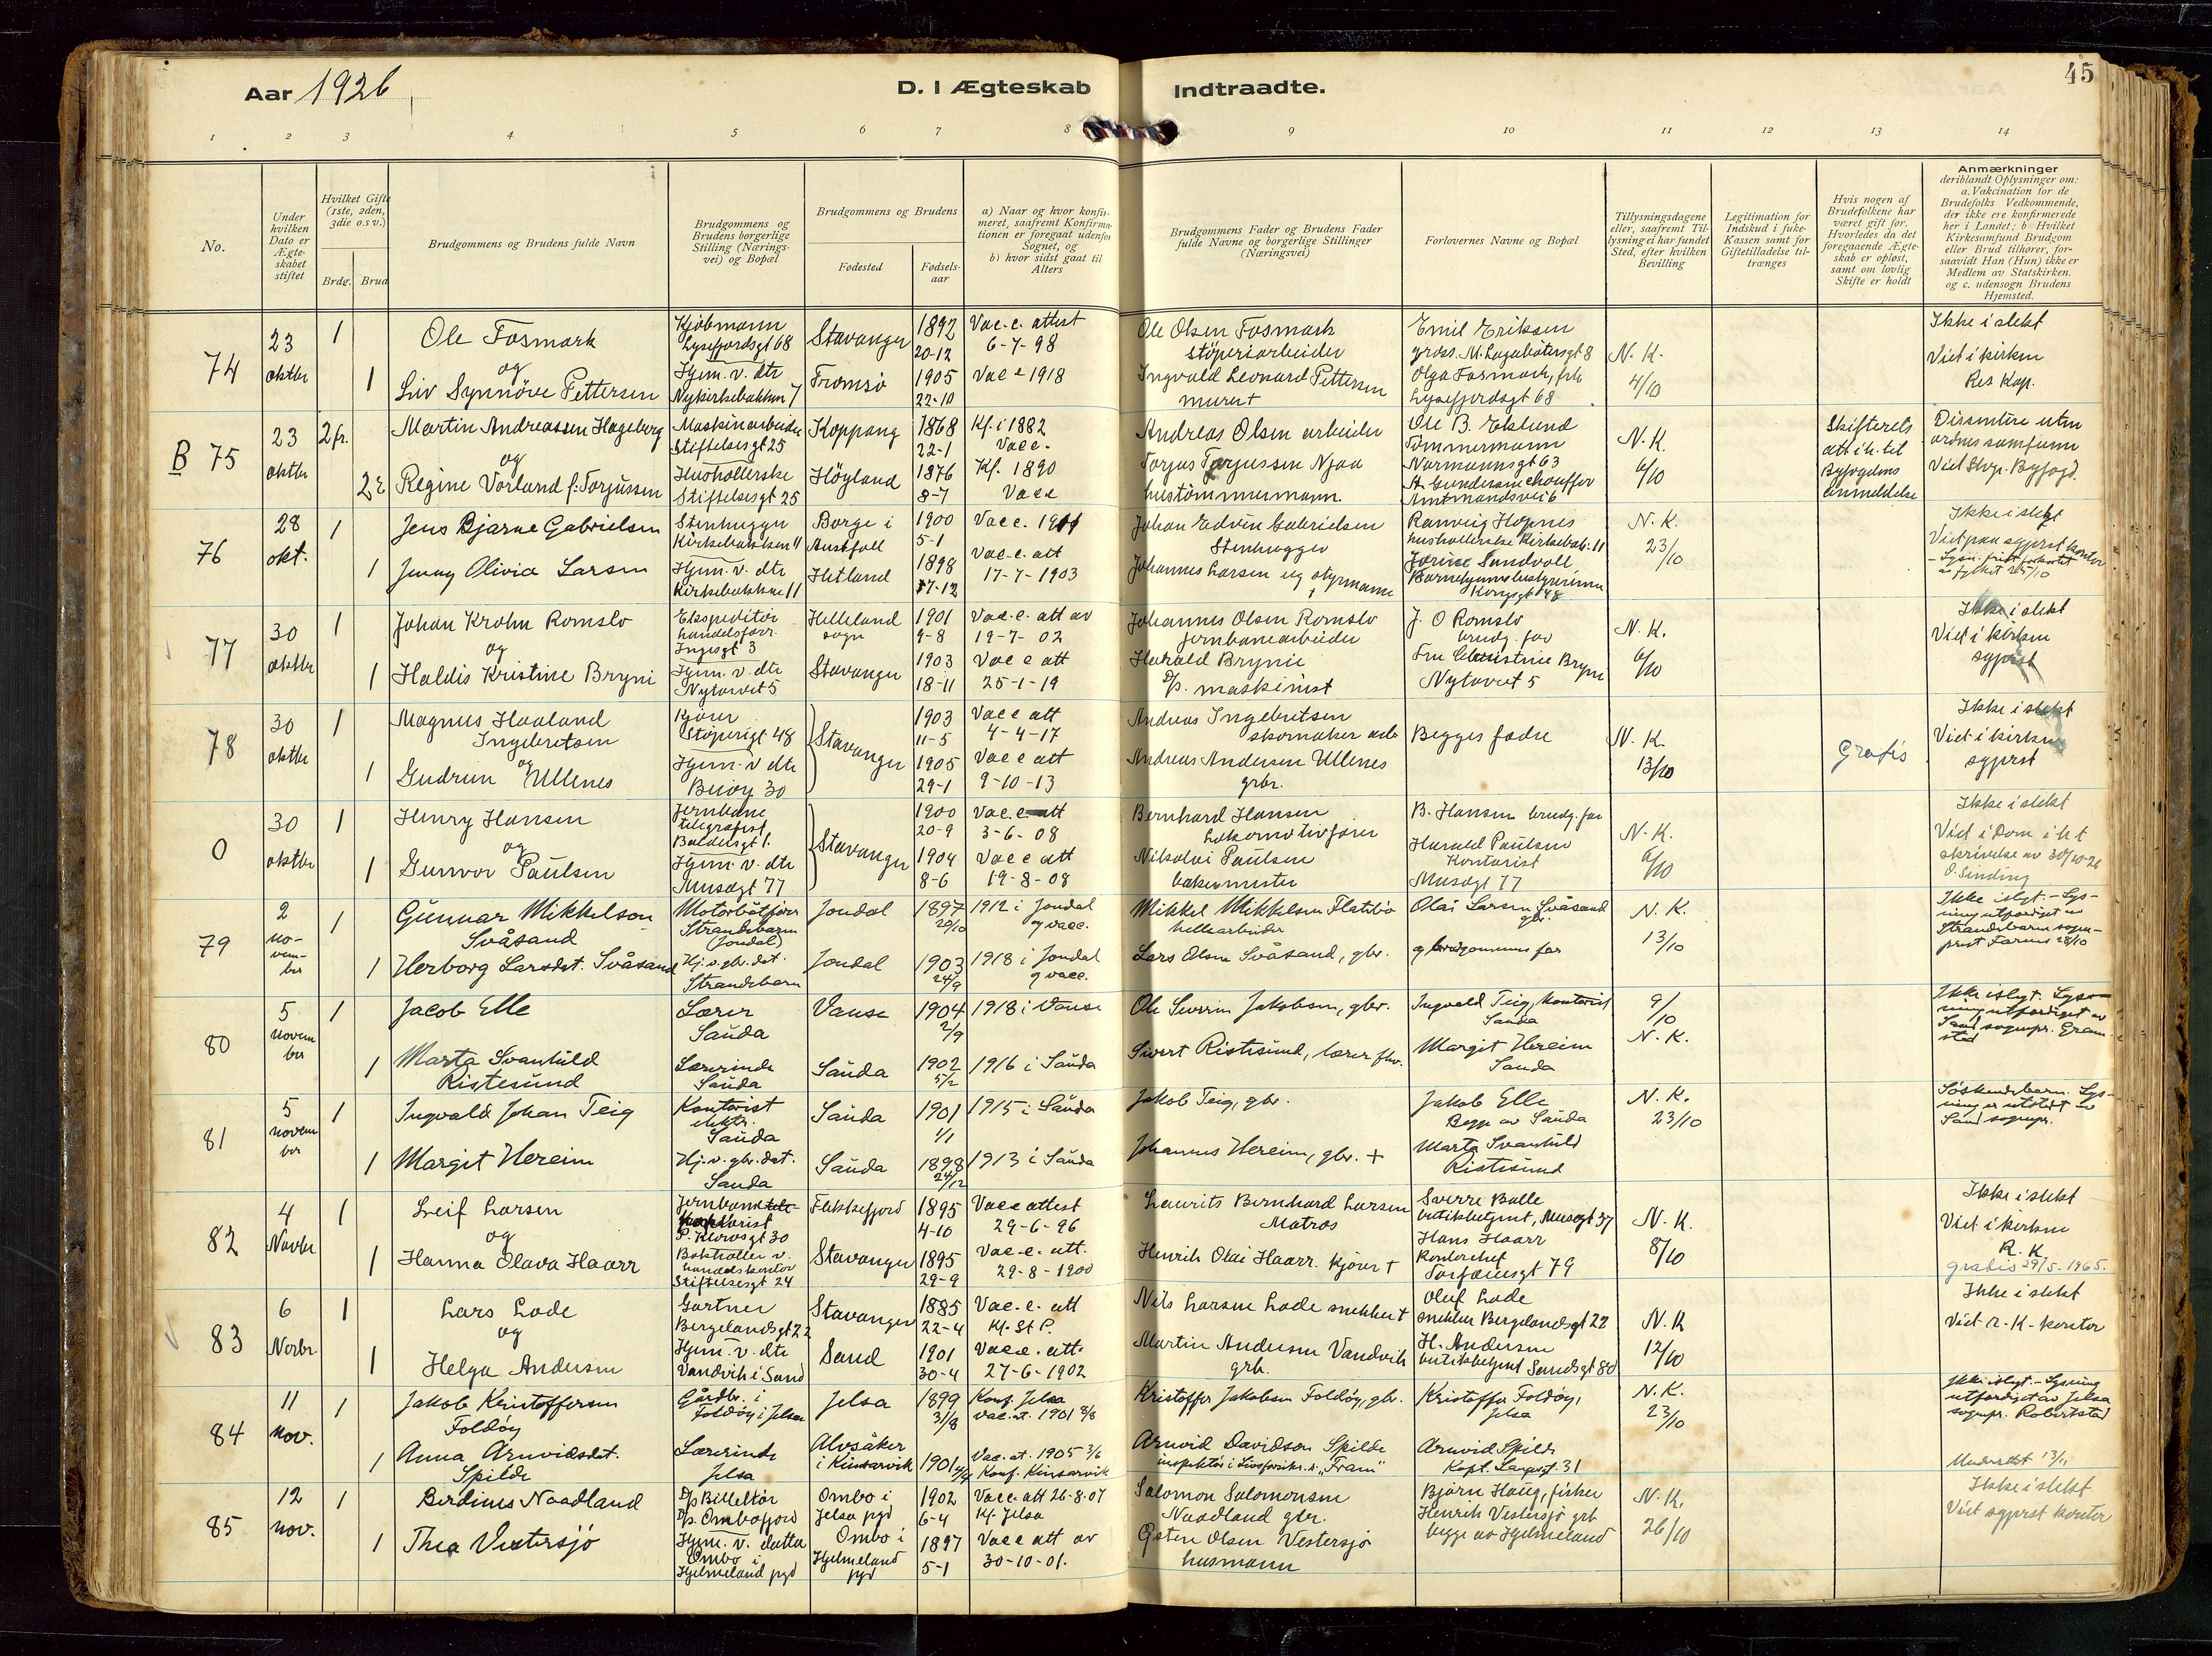 Aar 1926
D. I Ægteskab Indtraadte.
45
1 2 3 4 5 6 7 8 9 10 11 12 13 14
No.
Under hvilken Dato er Ægteskabet stiftet
Hvilket Gifte (1ste, 2den, 3die o.s.v.)
Brdg. Brud
Brudgommens og Brudens fulde Navn
Brudgommens og Brudens borgerlige Stilling (Næringsvei) og Bopæl
Brudgommens og Brudens
Fødested
Fødselsaar
a) Naar og hvor konfirmeret, saafremt Konfirmationen er foregaat udenfor Sognet, og
b) hvor sidst gaat til Alters
Brudgommens Fader og Brudens Fader fulde Navne og borgerlige Stillinger (Næringsvei)
Forlovernes Navne og Bopæl
Tillysningsdagene eller, saafremt Tillysning ei har fundet Sted, efter hvilken Bevilling
Legitimation for Indskud i fuke-Kassen samt for Giftetilladelse tiltrænges
Hvis nogen af Brudefolkene har været gift før. Hvorledes da det foregaaende Ægteskab er opløst, samt om lovlig Skifte er holdt
Anmærkninger
deriblandt Oplysninger om: a. Vakcination for de Brudefolks Vedkommende, der ikke ere konfirmerede her i Landet; b Hvilket Kirkesamfund Brudgom eller Brud tilhører, forsaavidt Han (Hun) ikke er Medlem av Statskirken. og c. udensogn Brudens Hjemsted.
74
23 oktbr
1
Ole Fosmark
Kjöbmann
Lysefjordsgt 68
Stavanger
1892
20-12
Vac. e. attest
6-7-98
Ole Olsen Fosmark
støperiarbeider
Emil Eriksen
N. K.
4/10
Ikke i slekt
Viet i kirken
Res Kap.
og
1
Liv Synnöve Pettersen
Hjem. v. dtr
Nykirkebakken 7
Tromsö
1905
22-10
Vac e 1918
Ingvald Leonard Pettersen
murer †
Olga Fosmark, frk
Lysefjordsgt 68
B 75
23 oktbr
2 fr.
Martin Andreassen Hageberg
Maskinarbeider
Stiftelsesgt 25
Koppang
1868
22-1
Kf. i 1882
Vacc.
Andreas Olsen arbeider
Ole B. Eklund
Tömmermann
Normannsgt 63
N. K.
6/10
Skifterets
att i h. til
Byfogdens
anmeldelse
Dissentere uten
ordnet samfunn
Viet Stvgr. Byfogd.
og
2
Regine Vorland f. Torjussen
Husholderske
Stiftelsesgt 25
Höyland
1876
8-7
Kf. 1890
Vacc
Torjus Torjussen Njaa
hustömmermann.
A. Gundersen chauffør
Amtmandsvei 6
76
28 okt.
1
Jens Bjarne Gabrielsen
Stenhugger
Kirkebakken 11
Borge i
Austfoll
1900
5-1
Vacc. 1911
Johan Edvin Gabrielsen
Stenhugger
Ranveig Hopnes
husholderske Kirkebak. 11
N. K.
23/10
Ikke i slegt
1
Jenny Olivia Larsen
Hjem. v. dtr
Kirkebakken 11
Hetland
1898
17-12
Vac. e. att
17-7-1903
Johannes Larsen
styrmann †
Jorine Sandvoll
Kongsgt 48
77
30 oktbr
1
Johan Krohn Romslo
Ekspeditör
handelsforr.
Ingesgt 3
Helleland
sogn
1901
9-8
Vac. e. att av
19-7-02
Johannes Olsen Romslo
jernbanearbeider
J. O Romslo
brudg. far
N. K.
6/10
Ikke i slekt
Viet i kirken
sgprst
og
1
Haldis Kristine Bryni
Hjem. v. dtr
Nytorvet 5
Stavanger
1903
18-11
Vac e att
25-1-19
Harald Brynie
D/p. maskinist
Fru Christine Bryni
Nytorvet 5
78
30 oktbr
1
Magnus Haaland
Ingebretsen
Kjörer
Støperigt 48
Stavanger
1903
11-5
Vac e att
4-4-17
Andreas Ingebretsen
skomaker arb
Begges fedre
N. K.
13/10
Gratis
Ikke i slekt
Viet i kirken
sgprst
og
1
Gudrun Ullenes
Hjem. v dtr
Buöy 30
1905
29-1
Vac e att
9-10-13
Andreas Andersen Ullenes
grbr.
0
30 oktbr
1
Henry Hansen
Jernbane
telegrafist
Baldersgt 1.
Stavanger
1900
20-9
Vac. e att
3-6-08
Bernhard Hansen
Lokomotivfører
B. Hansen brudg. far
N. K.
6/10
Ikke i slekt
Viet i Dom. i h t
skrivelse av 30/10-26
O. Sinding
og
1
Gunvor Paulsen
Hjem. v. dtr
Musegt 77
1904
8-6
Vac e att
19-8-08
Nikolai Paulsen
bakermester
Harald Paulsen
Kontorist
Musegt 77
79
2 november
1
Gunnar Mikkelson
Svåsand
Motorbåtfører
Strandebarm
(Jondal)
Jondal
1897
20/10
1912 i Jondal
og vacc.
Mikkel Mikkelsen Flatebø
hellearbeider
Olai Larsen Svåsand
gbr.
N. K.
13/10
Ikke i slegt. - Lysning utfærdiget av
Strandebarm sogneprest
28/10
1
Herborg Larsdat. Svåsand
Hj. v. gbr. dat.
Strandebarm
Jondal
1903
24/9
1918 i Jondal
og vacc.
Lars Olsen Svåsand, gbr.
og brudgommens far
80
5 november
1
Jacob Elle
Lærer
Sauda
Vanse
1904
2/9
1918 i Vanse
Ole Severin Jakobsen, gbr.
Ingvald Teig, kontorist
Sauda
9/10
N. K.
Ikke i slegt. Lysning utfærdiget av
Sand sognepr. Gramstad
1
Marta Svanhild
Ristesund
Lærerinde
Sauda
Sauda
1902
5/2
1916 i Sauda
Sivert Ristesund, lærer fhv.
Margit Hereim
Sauda
81
5 november
1
Ingvald Johan Teig
Kontorist
elektr.
Sauda
Sauda
1901
1/1
1915 i Sauda
Jakob Teig, gbr.
Jakob Elle
Begge av Sauda
N. K.
23/10
Søskendebarn. Lysning er utstedt av
Sand sognepr.
1
Margit Hereim
Hj. v. gbr. dat.
Sauda
Sauda
1898
24/12
1913 i Sauda
Johannes Hereim, gbr. +
Marta Svanhild
Ristesund
82
4 Novbr
1
Leif Larsen
P. Klowsgt 30
Flekkefjord
1895
4-10
Vacc attest
29-6-96
Laurits Bernhard Larsen
Matros
Sverre Balle
butikkbetjent, Musegt 37
N. K.
8/10
Ikke i slekt
Viet i kirken
R. K.
gratis 29/5-1965.
og
1
Hanna Olava Haarr
Bokholder v.
handelskontor
Stiftelsesgt 24
Stavanger
1895
29-9
Vac. e. att.
29-8-1900
Henrik Olai Haarr. Kjörer †
Hans Haarr
Kontorchef
Torfæusgt 79
83
6 Novbr.
1
Lars Lode
Gartner
Bergelandsgt 22
Stavanger
1885
22-4
Vac. e. att
Kf. St P.
Nils Larsen Lode snekker †
Oluf Lode
snekker Bergelandsgt 22
N. K
12/10
Ikke i slekt
Viet R. K - kontor
og
1
Helga Andersen
Hjem. v. dtr
Vandvik i Sand
Sand
1901
30-4
Vac. e. att.
27-6-1902
Martin Andersen Vandvik
grb.
H. Andersen
butikkbetjent Sandsgt 80
84
11 nov.
1
Jakob Kristoffersen
Foldöy
Gårdbr. i
Foldöy i Jelsa
Jelsa
1899
31/8
Konf. Jelsa
vac. at. 1901 8/8
Kristoffer Jakobsen Foldöy, gbr.
Kristoffer Foldöy,
Jelsa
N. K.
23/10
Ikke i slegt. - Lysning
utfærdiget av Jelsa
sognepr. Robertstad
1
Anna Arnvidsdat.
Spilde
Lærerinde
Jelsa
Alvsåker
i Kinsarvik
1901 4/4
Vac. at. 1905 3/6
Konf. Kinsarvik
Arnvid Davidson Spilde
inspektör i Livsforsikr. s. "Fram"
Arnvid Spilde
Kapt. Langesgt. 31
Underrettet 13/11
85
12 nov.
1
Berdines Naadland
D/p Billettør
D/p. Ombofjord
Ombo i
Jelsa pgd
1902
6-4
Vacc. att 26-8-07
Kf. Jelsa
Salomon Salomonsen
Naadland gbr.
Bjørn Haug, fisker
N. K.
26/10
Ikke i slekt
Viet sgprst kontor
1
Thea Vestersjö
Hjem. v. datter
Ombo i
Hjelmeland pgd
Ombo i
Hjelmeland
pgd
1897
5-1
Vac e att av
30-10-01.
Østen Olsen Vestersjø
husmann
Henrik Vestersjø grb
begge av Hjelmeland